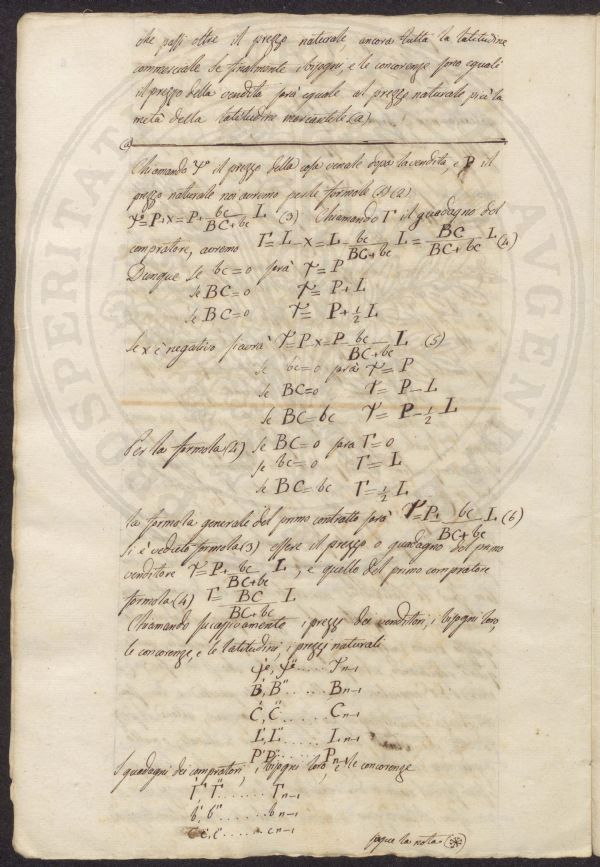 che passi oltre il prezzo naturale, ancora tutta la latitudine
commerciale. Se finalmente i bisogni, e le concorenze sono eguali
il prezzo della vendita sarà eguale al prezzo naturale più la
metà della latitudine mercantile (a)
(a)
Chiamando Y° il prezzo della cosa venale dopo la vendita e P il
prezzo naturale noi avremo per le formole (1) (2)
Y° = P + x = P + bc/BC+bc L (3) Chiamando Γ il guadagno del
compratore, avremo Γ = L - x = L - bc/BC+bc L = BC/BC+bc L (4)
Dunque se bc = 0 sarà Y = P
se BC = 0 Y = P + L
se BC = 0 Y = P + 1/2 L
Se x è negativo s'avrà Y = P - x = P - bc/BC+bc L (5)
se bc = 0 sarà Y = P
se BC = 0 Y = P - L
se BC = bc Y = P - 1/2 L
Per la formola (4) se BC = 0 sara Γ = 0
se bc = 0 Γ = L
se BC = bc Γ = 1/2 L
la formola generale del primo contratto sarà Y = P + bc/BC+bc L (6)
Si è veduto formola (3) essere il prezzo o guadagno del primo
venditore Y = P + bc/BC+bc L, e quello del primo compratore
formola (4) Γ = BC/BC+bc L
Chiamando successivamente i prezzi dei venditori, i bisogni loro,
le concorenze, e le latitudini, i prezzi naturali
Y', Y'' ...... Yn-1
B', B'' ...... Bn-1
C', C'' ...... Cn-1
L', L'' ...... Ln-1
P', P'' ...... Pn-1
I guadagni dei compratori, i bisogni loro, e le concorenze
Γ', Γ'' ...... Γn-1
b', b'' ...... bn-1
c', c'' ...... cn-1
segue la nota (*)
PROSPERITATI
AVGENDAE